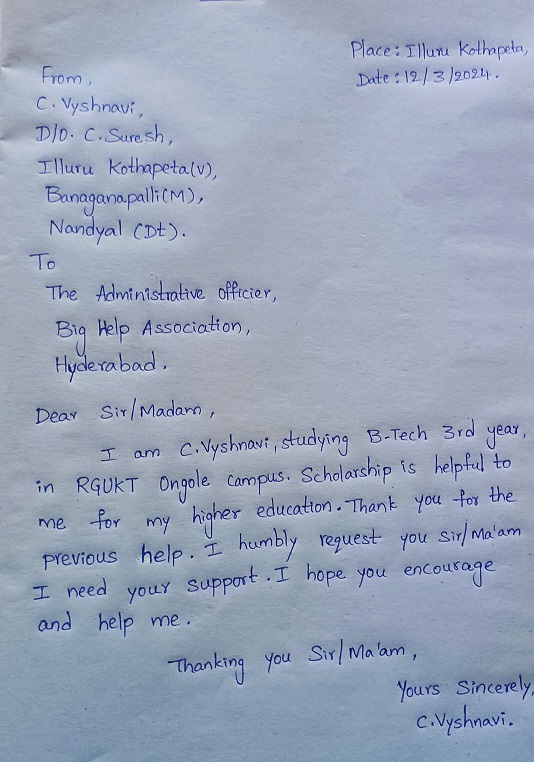 Place: Illuru Kothapeta,
Date: 12/3/2024.
From,
C. Vyshnavi,
D/O. C. Suresh,
Illuru Kothapeta(V),
Banaganapalli(M),
Nandyal (Dt).
To
The Administrative officier,
Big Help Association,
Hyderabad.
Dear Sir/Madam,
I am C.Vyshnavi, studying B-Tech 3rd year,
in RGUKT Ongole campus. Scholarship is helpful to
me for my higher education. Thank you for the
previous help. I humbly request you sir/Ma'am
I need your support. I hope you encourage
and help me.
Thanking you Sir/Ma'am,
Yours Sincerely,
C.Vyshnavi.